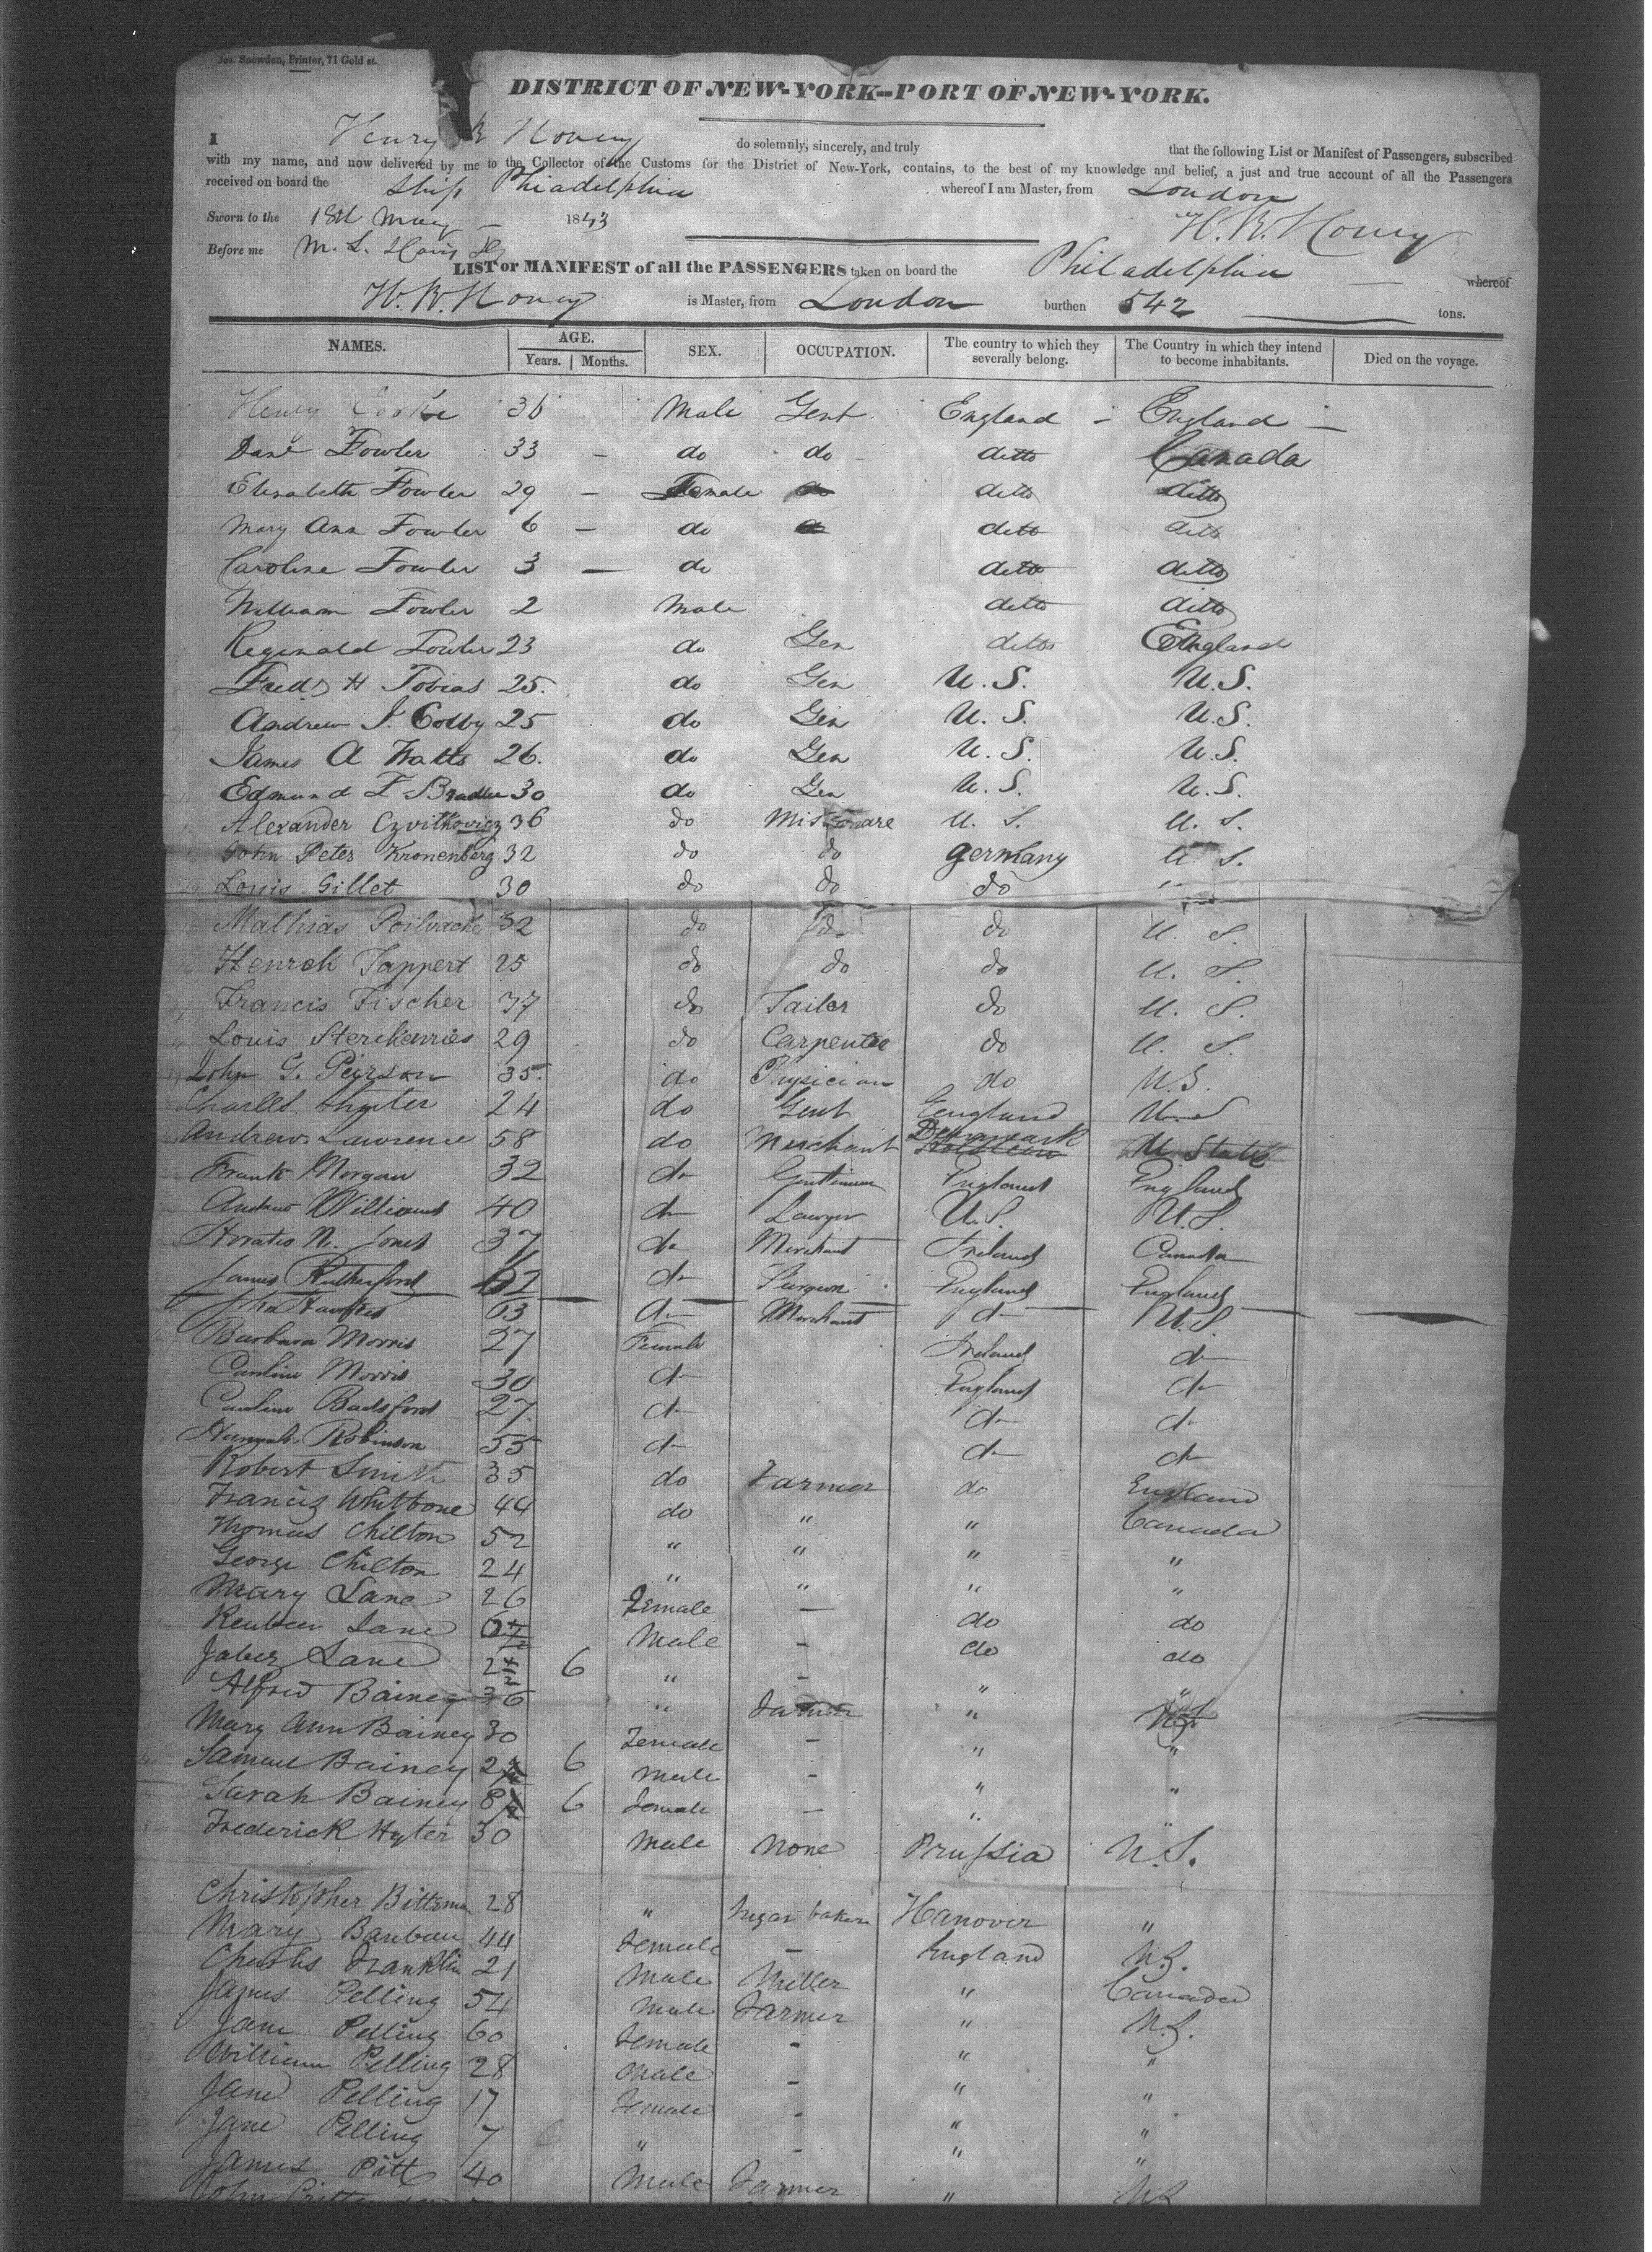 Jos. Snowden, Printer, 71 Gold st.
DISTRICT OF NEW-YORK--PORT OF NEW-YORK.
I Henry do solemnly, sincerely, and truly that the following List or Manifest of Passengers, subscribed
with my name, and now delivered by me to the Collector of the Customs for the District of New-York, contains, to the best of my knowledge and belief, a just and true account of all the Passengers
received on board the Ship Phiadelphia whereof I am Master, from London
Sworn to the 18th May 1843
Before me M. L. Davis
LIST or MANIFEST of all the PASSENGERS taken on board the Philadelphia whereof
is Master, from London burthen 542 tons.
NAMES. AGE. Years. Months. SEX. OCCUPATION. The country to which they severally belong. The Country in which they intend to become inhabitants. Died on the voyage.
Henry Cooke 36 Male Gent England - England -
Fowler 33 - do do ditto Canada
Elizabeth Fowler 29 - Female do ditto ditto
Mary Ann Fowler 6 - do ditto ditto
Caroline Fowler 3 - do ditto ditto
William Fowler 2 Male ditto ditto
Reginald Fowler 23 do Gen ditto England
Fredk H Tobias 25. do Gen U.S. U.S.
Andrew J. Colby 25 do Gen U.S. U.S.
James A Watts 26. do Gen U.S. U.S.
Edmund T Bradlee 30 do Gen U.S. U.S.
Alexander Czvitkovicz 36 do U. S. U. S.
John Peter Kronenberg 32 do do Germany U. S.
Louis Gillet 30 do do do "
Mathias Poilvache 32 do do do U. S.
Henrek Tappert 25 do do do U. S.
Francis Fischer 37 do Tailor do U. S.
Louis 29 do Carpentee do U. S.
John G. Peirson 35. do Physician do U.S.
Charles 24 do Gent England U.S
Andrew Lawrence 58 do Merchant Denmark U State
Frank Morgan 32 do Gentleman England England
Andrew Williams 40 do Lawyer U.S. U.S.
Horatio N. Jones 37 do Merchant Ireland Canada
James Rutherford 62 do Surgeon England England
John 63 do Merchant do U.S.
Barbara Morris 27 Female Ireland do
Caroline Morris 30 do England do
Caroline 27 do do do
Hannah Robinson 55 do do do
Robert Smith 35 do Farmer do England
Francis Whitbone 44 do " " Canada
Thomas Chilton 52 " " " "
George Chilton 24 " " " "
Mary Lane 26 Female — do do
Reuben Lane Male - do do
Jabez Lane 2 6 " - " "
Alfred Bainey 36 " Farmer " U.S.
Mary Ann Bainey 30 Female - " "
Samuel Bainey 2 6 Male - " "
Sarah Bainey 8 6 Female — " "
Frederick Hyter 30 Male None Prussia U.S.
Christopher 28 " Sugar baker Hanover "
Mary 44 Female - England U.S.
Charles Franklin 21 Male Miller " Canada
James Pelling 54 Male Farmer " U.S.
Jane Pelling 60 Female - " "
William Pelling 28 Male - " "
Jane Pelling 17 Female - " "
Jane Pelling 7 " - " "
James Pitt 40 Male Farmer " U.S.
John